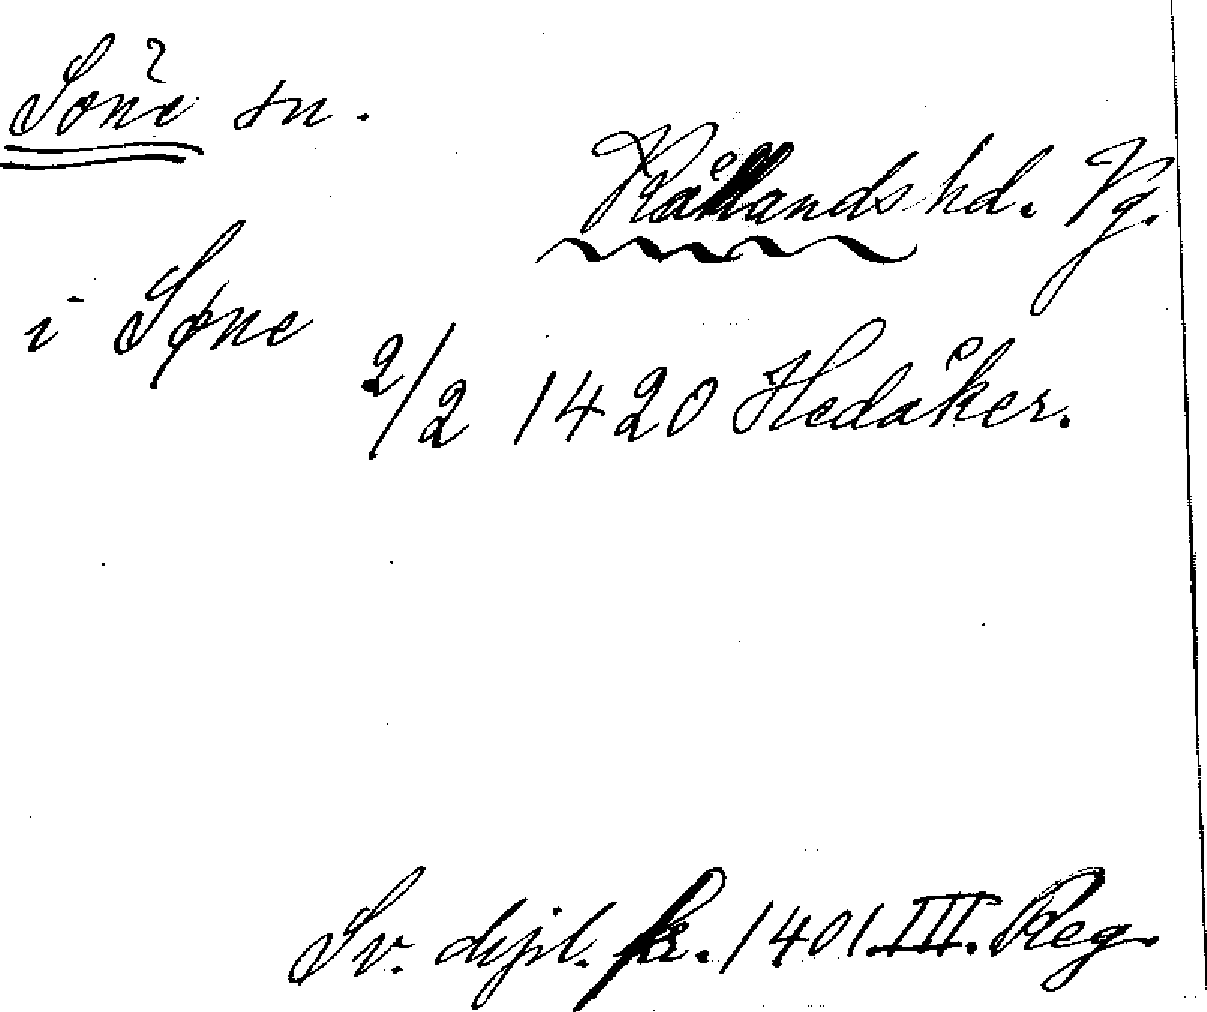 Sone sn.
Kållands hd. Vg.
i Søne
2/2 1420 Hedåker.
Sv. dipl. fr. 1401 III. Reg.